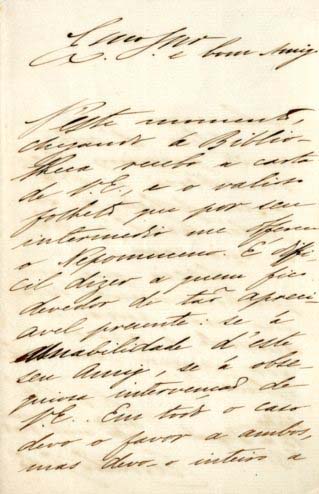 Exmo Snr
e bom Amigo
N'este momento,
chegando á Biblio-
theca recebo a carta
de V.E., e o valioso
folheto que por seu
intermedio me offerece
o Nepomuceno. É diffi
cil dizer a quem fico
devedor de tão apreci-
avel presente: se á
amabilidade d'este
seu Amigo, se á obse-
quiosa intervenção de
V.E.. Em todo o caso
devo o favor a ambos,
mas devo-o inteiro a